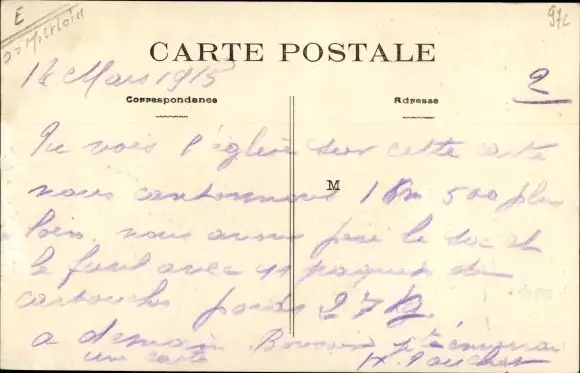 E
97L
CARTE POSTALE
Mars 1915
2
Correspondance
Adresse
Tu vois l'église sur cette carte
M
nous cantonnons 1 Km 500 plus
loin, nous avons pesé le sac et
le fusil avec 11 paquets de
cartouches poids 27 Kg
a demain Bonsoir
une carte